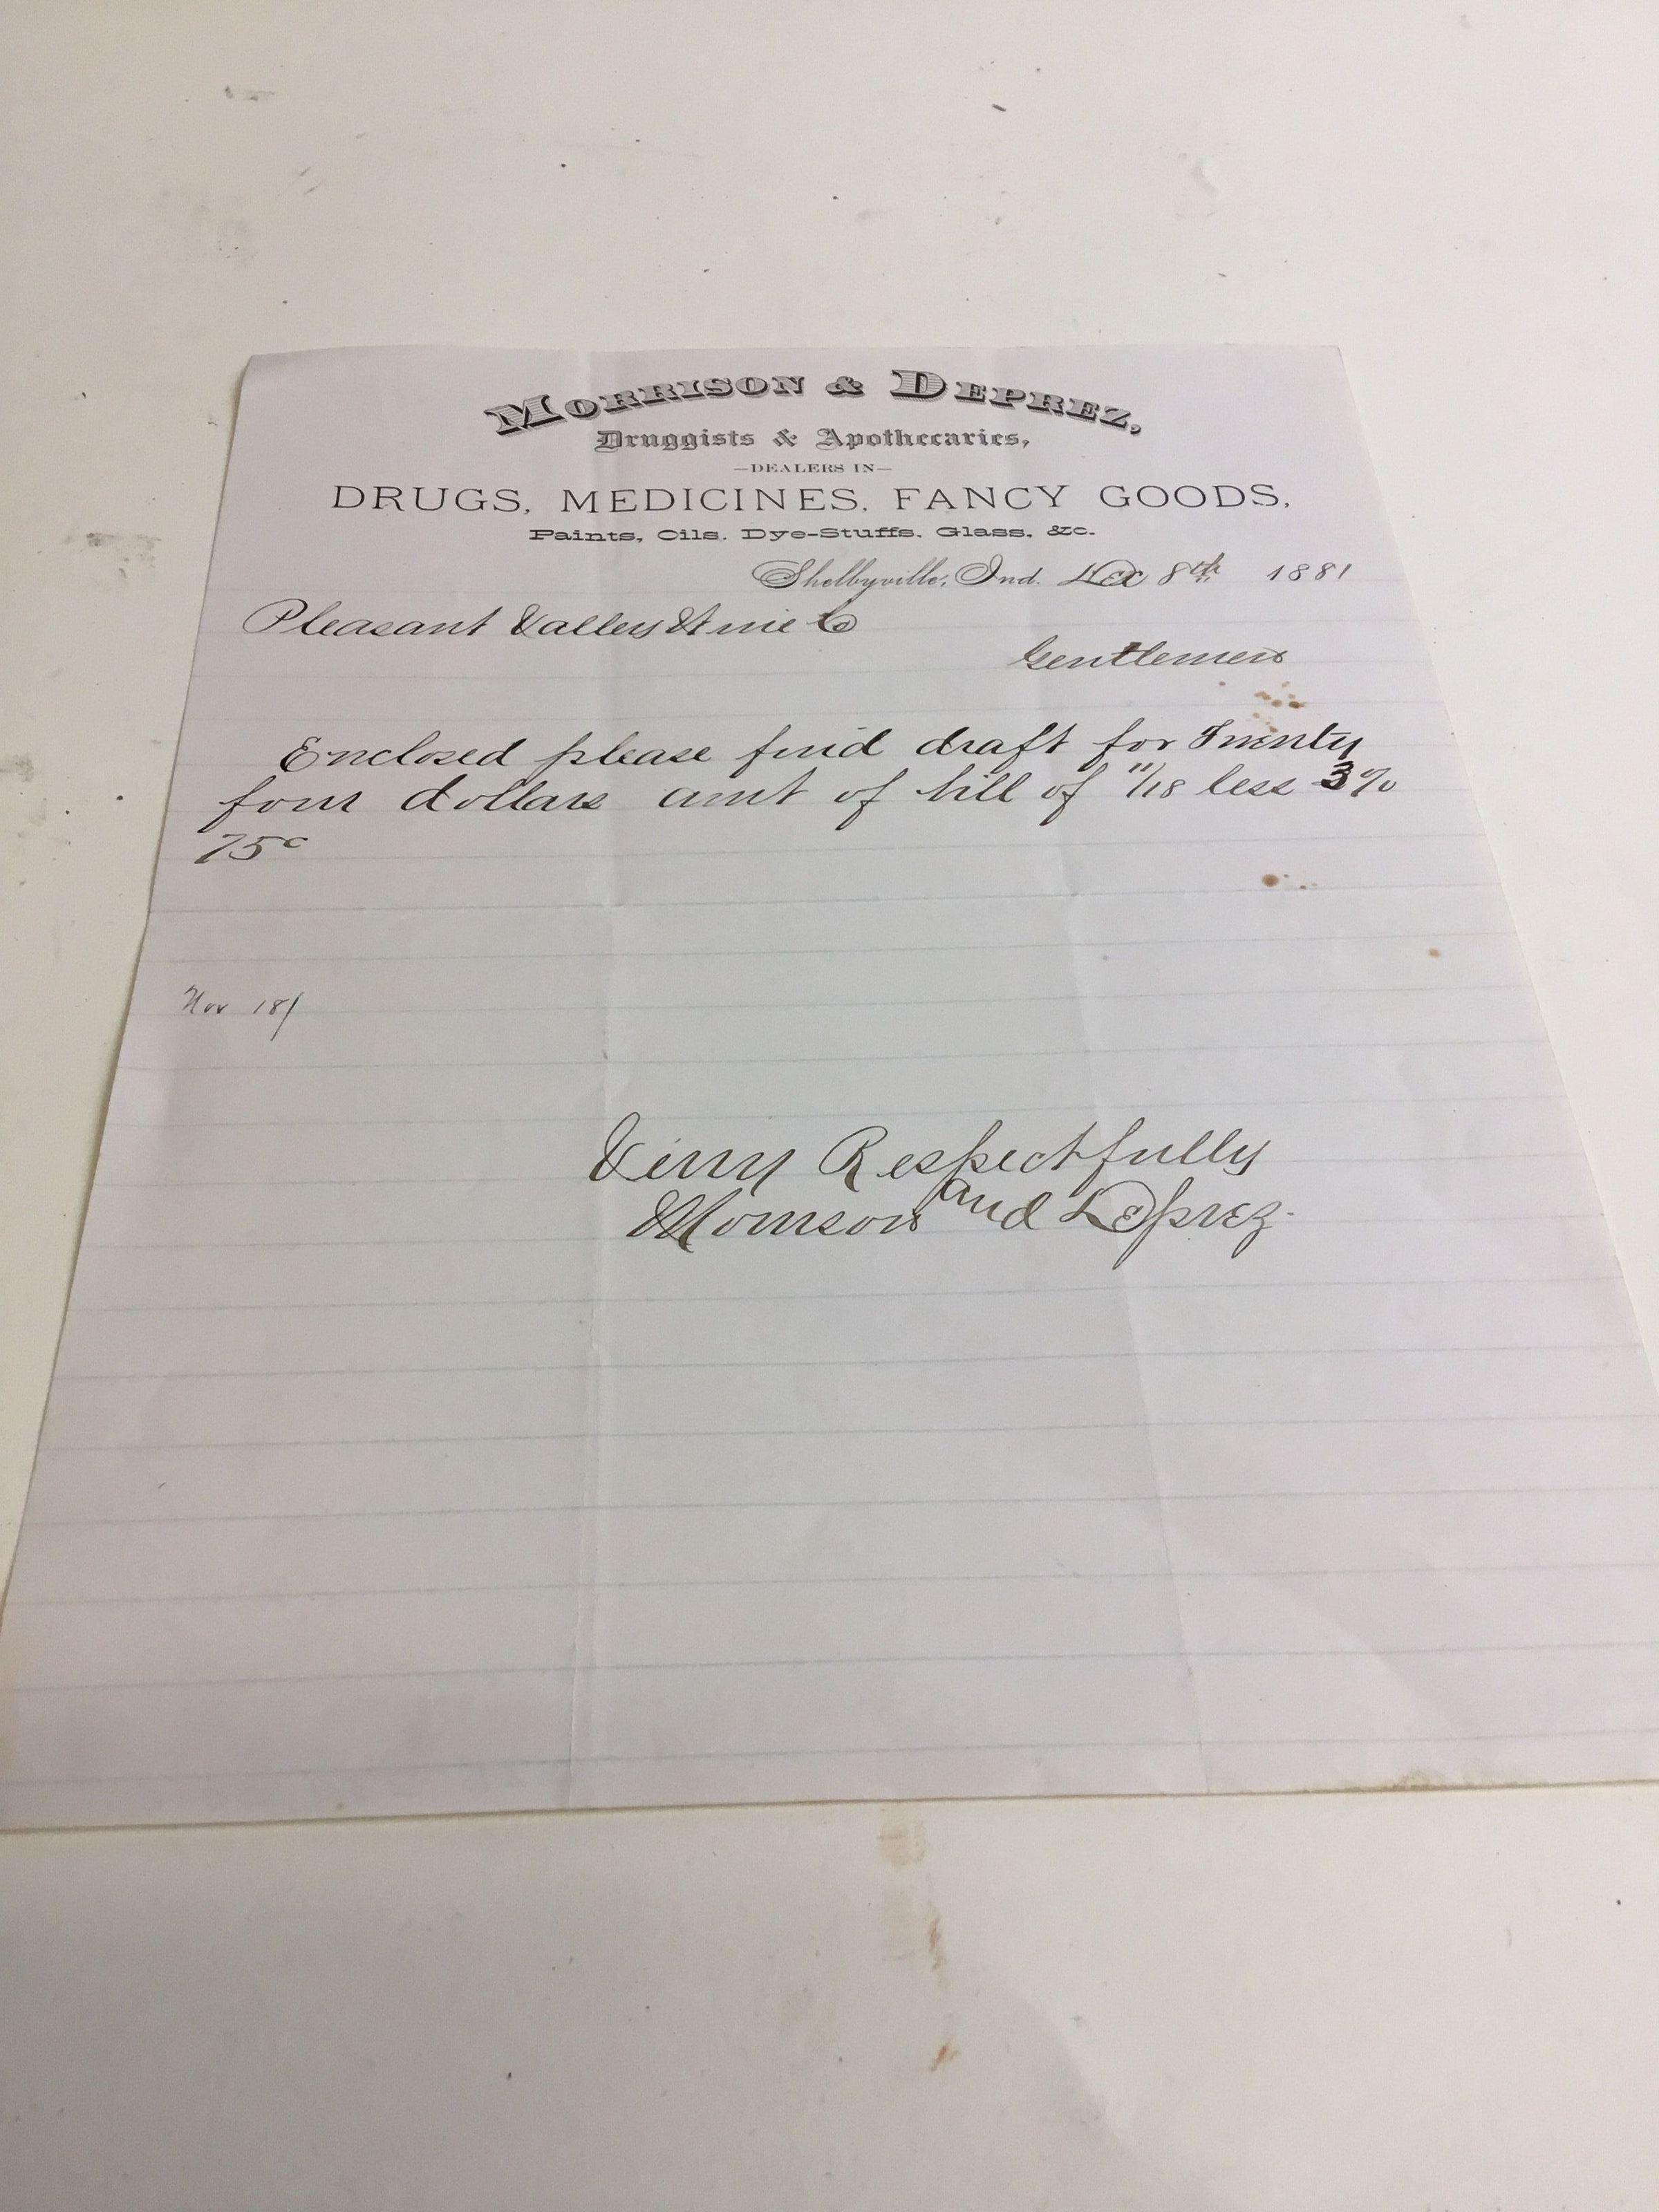 MORRISON & DEPREZ,
Druggists & Apothecaries,
—DEALERS IN—
DRUGS, MEDICINES, FANCY GOODS,
Paints, Oils, Dye-Stuffs, Glass, &c.
Shelbyville, Ind. Dec 8th 1881
Pleasant Valley Wine Co
Gentlemen
Enclosed please find draft for Twenty
four dollars amt of bill of 11/18 less 3%
75c
Nov 18/
Very Respectfully
Morrison and Deprez.